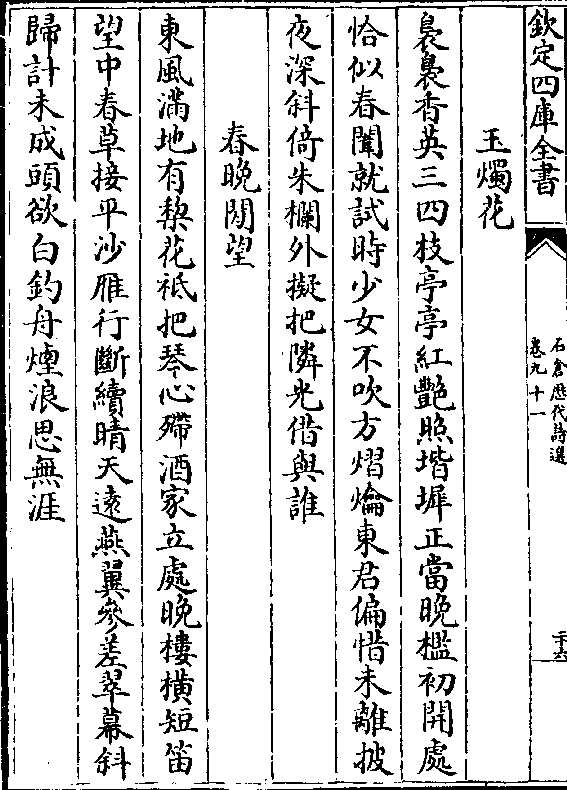 欽定四庫全書
石倉歷代詩選
卷九十一
二十六
玉燭花
裊裊香英三四枝亭亭紅艷照堦墀正當晚檻初開處
恰似春闈就試時少女不吹方熠爚東君偏惜未離披
夜深斜倚朱欄外擬把隣光借與誰
春晚閒望
東風滿地有棃花祗把琴心殢酒家立處晚樓橫短笛
望中春草接平沙雁行斷續晴天遠燕翼參差翠幕斜
歸計未成頭欲白釣舟煙浪思無涯